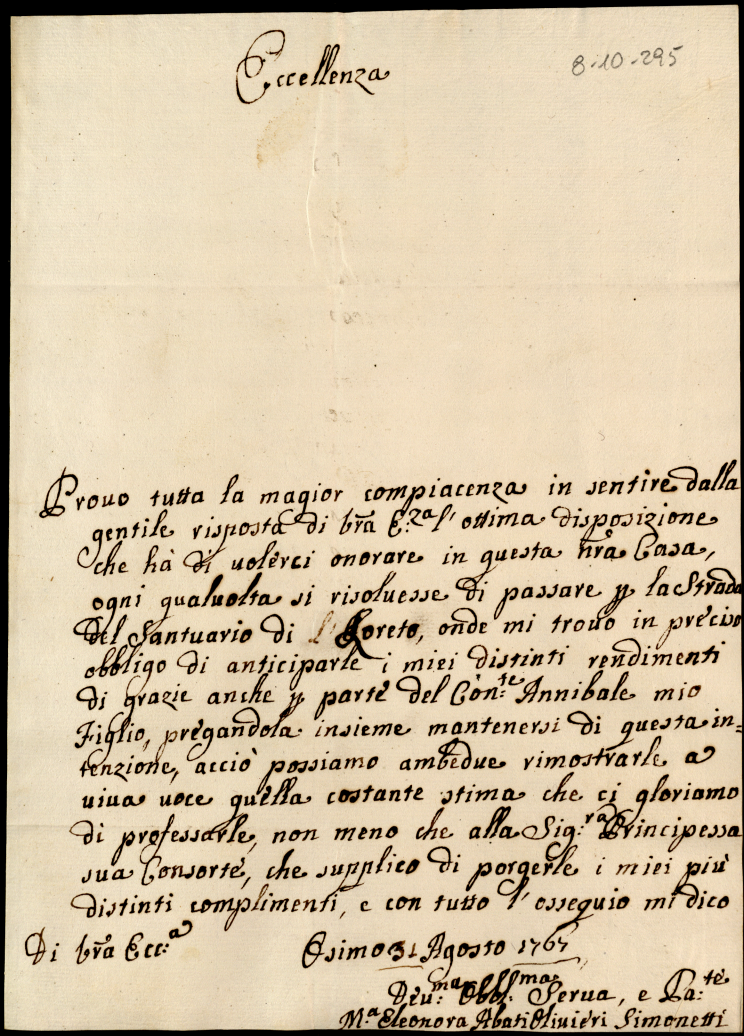 8-10-295
Eccellenza
Prouo tutta la magior compiacenza in sentire dalla
gentile risposta di Vra E.za l'ottima disposizione
che hà di uolerci onorare in questa nrà Casa,
ogni qualuolta si risoluesse di passare p la Strada
del Santuario di Loreto, onde mi trouo in preciso
obbligo di anticiparle i miei distinti rendimenti
di grazie anche p parte del Con.te Annibale mio
Figlio, pregandola insieme mantenersi di questa in=
tenzione, acciò possiamo ambedue rimostrarle a
uiua uoce quella costante stima che ci gloriamo
di professarle, non meno che alla Sig.ra Principessa
sua Consorte, che supplico di porgerle i miei più
distinti complimenti, e con tutto l'ossequio mi dico
Di Vra Ecc.a
Osimo 31 Agosto 1767
Deu.ma Obbl.ma Serua, e Pa.te
M.a Eleonora Abati Oliuieri Simonetti